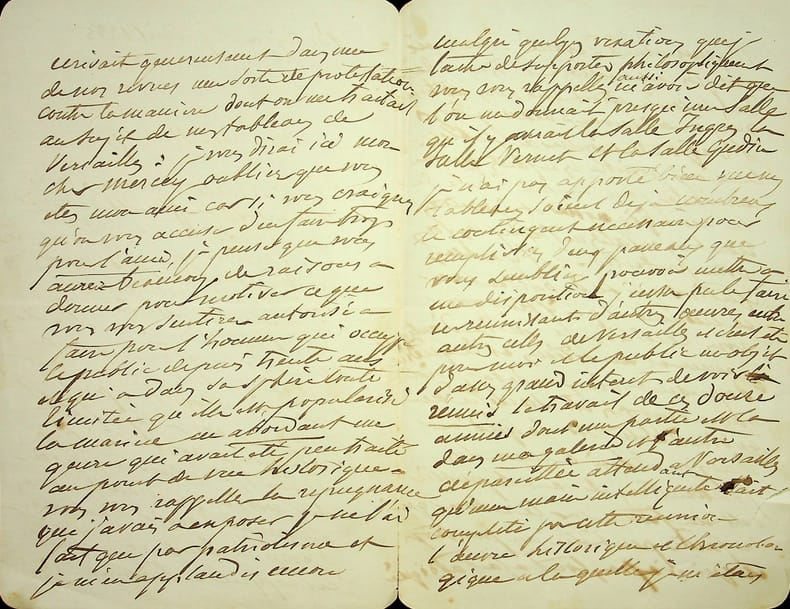 écrivait généreusement dans une
de nos revues une sorte de protestation
contre la manière dont on me traitait
au sujet de mes tableaux de
Versailles. je vous dirai ici mon
cher mercey oubliez que vous
êtes mon ami car si vous craignez
qu'on vous accuse d'en faire trop
pour l'ami, je pense que vous
aurez beaucoup de raisons a
donner pour motiver ce que
vous vous sentirez autorisé a
faire pour l'homme qui occupe
le public depuis trente ans
et qui a dans sa sphère toute
limitée qu'elle est popularisé
la marine en abordant un
genre qui avait été peu traité
au point de vue historique.
vous vous rappellez la répugnance
que j'avais a exposer je ne l'ai
fait que par patriotisme et
je m'en applaudis encore
malgré quelques vexations que j'ai
de supporter philosophiquement
vous vous rappellez aussi m'avoir dit que
l'on me donnait presque une Salle
qu'il y aurait la Salle Ingres la
Salle Vernet et la Salle Gudin
je n'ai pas apporté bien que mes
tableaux soient déjà nombreux
le contingent nécessaire pour
remplir les panneaux que
vous semblez pouvoir mettre a
ma disposition, mais
en réunissant d'autres oeuvres entre
autres celles de Versailles et c'eut été
pour moi et le public un objet
d'assez grand intérêt de voir
réunis le travail de ces douze
années dont une partie est la
dans ma galerie et l'autre
éparpillée attendant a Versailles
qu'une main intelligente
complète par cette réunion
l'oeuvre historique et chronolo
gique a laquelle je m'étais